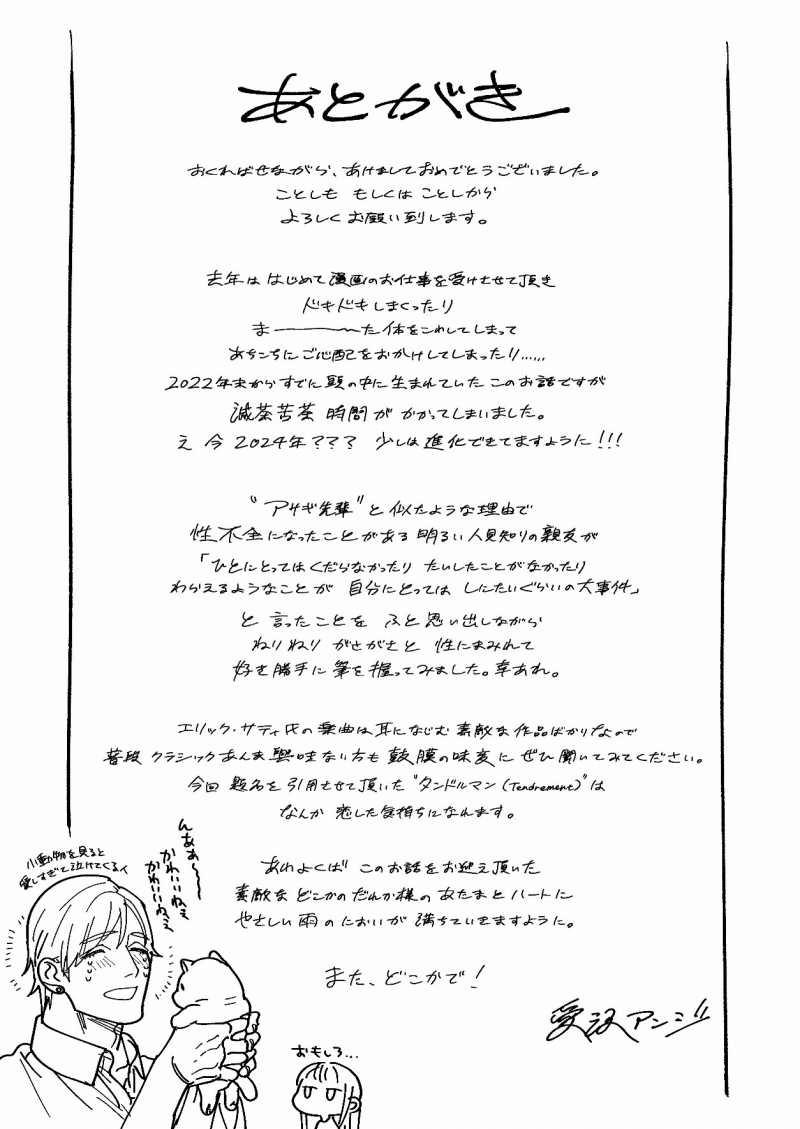 あとがき
おくればせながら、あけましておめでとうございました。
ことしも もしくは ことしから
よろしくお願い到します。
去年は はじめて漫画のお仕事を受けさせて頂き
ドキドキしまくったり
ま――――〜た体をこわしてしまって
あちこちにご心配をおかけしてしまったり……
2022年末からすでに頭の中に生まれていたこのお話ですが
滅茶苦茶 時間が かかってしまいました。
え 今 2024年??? 少しは進化できてますように!!!
"アサギ先輩"と似たような理由で
性不全になったことがある明るい人見知りの親友が
「ひとにとってはくだらなかったり たいしたことがなかったり
わらえるようなことが 自分にとっては しにたいぐらいの大事件」
と 言ったことを ふと思い出しながら
ねりねり がさがさと 性にまみれて
好き勝手に筆を握ってみました。幸あれ。
エリック・サティ氏の楽曲は耳になじむ素敵な作品ばかりなので
普段クラシックあんま興味ない方も鼓膜の味変に ぜひ聞いてみてください。
今回 題名を引用させて頂いた"タンドルマン(Tendrement)"は
なんか 恋した気持ちになれます。
あわよくば このお話をお迎え頂いた
素敵な どこかのだれか様の あたまとハートに
やさしい雨のにおいが 満ちていきますように。
また、どこかで!
愛沢アンジ
小動物を見ると
愛しすぎて泣けてくるイ
んああ〜〜
かわいいねえ
かわいいねえ
おもしろ…